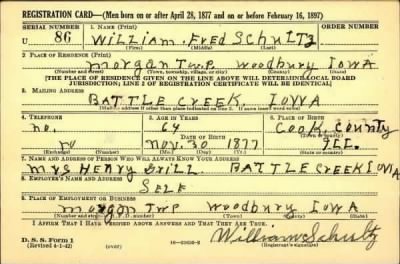 REGISTRATION CARD—(Men born on or after April 28, 1877 and on or before February 16, 1897)
SERIAL NUMBER 1. NAME (Print) ORDER NUMBER
U 86 William Fred Schultz
(First) (Middle) (Last)
2. PLACE OF RESIDENCE (Print)
Morgan Twp. Woodbury Iowa
(Number and street) (Town, township, village, or city) (County) (State)
[THE PLACE OF RESIDENCE GIVEN ON THE LINE ABOVE WILL DETERMINE LOCAL BOARD
JURISDICTION; LINE 2 OF REGISTRATION CERTIFICATE WILL BE IDENTICAL]
3. MAILING ADDRESS
BATTLE CREEK, IOWA
[Mailing address if other than place indicated on line 2. If same insert word same]
4. TELEPHONE 5. AGE IN YEARS 6. PLACE OF BIRTH
no. 64 Cook County
DATE OF BIRTH (Town or county)
no Nov. 30 1877 ILL.
(Exchange) (Number) (Mo.) (Day) (Yr.) (State or country)
7. NAME AND ADDRESS OF PERSON WHO WILL ALWAYS KNOW YOUR ADDRESS
MRS HENRY BRILL. BATTLE CREEK IOWA
8. EMPLOYER'S NAME AND ADDRESS
SELF
9. PLACE OF EMPLOYMENT OR BUSINESS
Morgan Twp Woodbury Iowa
(Number and street or R. F. D. number) (Town) (County) (State)
I AFFIRM THAT I HAVE VERIFIED ABOVE ANSWERS AND THAT THEY ARE TRUE.
D. S. S. Form 1
(Revised 4-1-42) (over) William Schultz
(Registrant's signature)